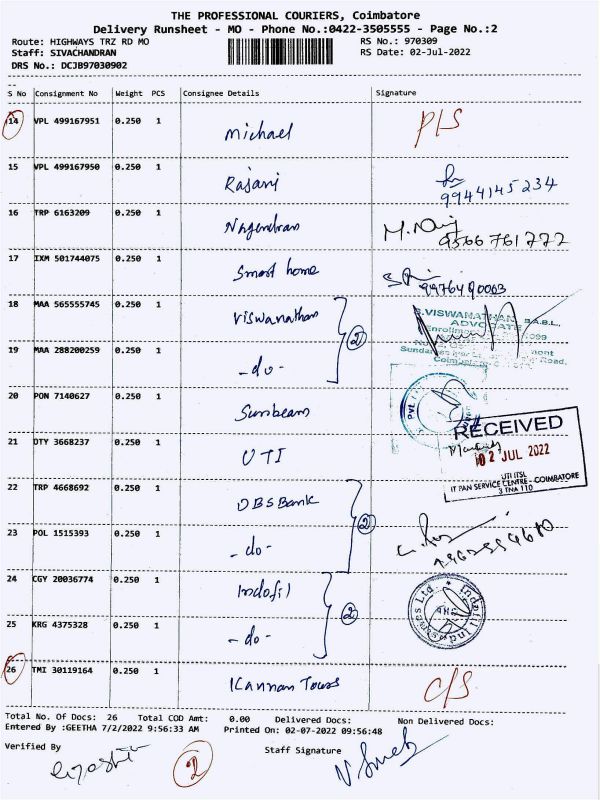 THE PROFESSIONAL COURIERS, Coimbatore
Delivery Runsheet - MO - Phone No.:0422-3505555 - Page No.:2
Route: HIGHWAYS TRZ RD MO RS No.: 970309
Staff: SIVACHANDRAN RS Date: 02-Jul-2022
DRS No.: DCJB97030902
S No Consignment No Weight PCS Consignee Details Signature
14 VPL 499167951 0.250 1 Michael P/S
15 VPL 499167950 0.250 1 Rajani
9944145234
16 TRP 6163209 0.250 1 Nagendran
9566761772
17 IXM 501744075 0.250 1 Smart home
9976490063
18 MAA 565555745 0.250 1 Viswanathan
S.VISWANATHAN, B.A.B.L.,
ADVOCATE
2
19 MAA 288200259 0.250 1 -do-
20 PON 7140627 0.250 1 Sunbeam
Pvt
21 DTY 3668237 0.250 1 UTI
RECEIVED
02 JUL 2022
UTI ITSL
IT PAN SERVICE CENTRE - COIMBATORE
3 TNA 110
22 TRP 4668692 0.250 1 DBS Bank
2
23 POL 1515393 0.250 1 -do-
24 CGY 20036774 0.250 1 Indofil
2
25 KRG 4375328 0.250 1 -do-
26 TMI 30119164 0.250 1 Kannan Tours C/S
Total No. Of Docs: 26 Total COD Amt: 0.00 Delivered Docs: Non Delivered Docs:
Entered By :GEETHA 7/2/2022 9:56:33 AM Printed On: 02-07-2022 09:56:48
Verified By Staff Signature
2